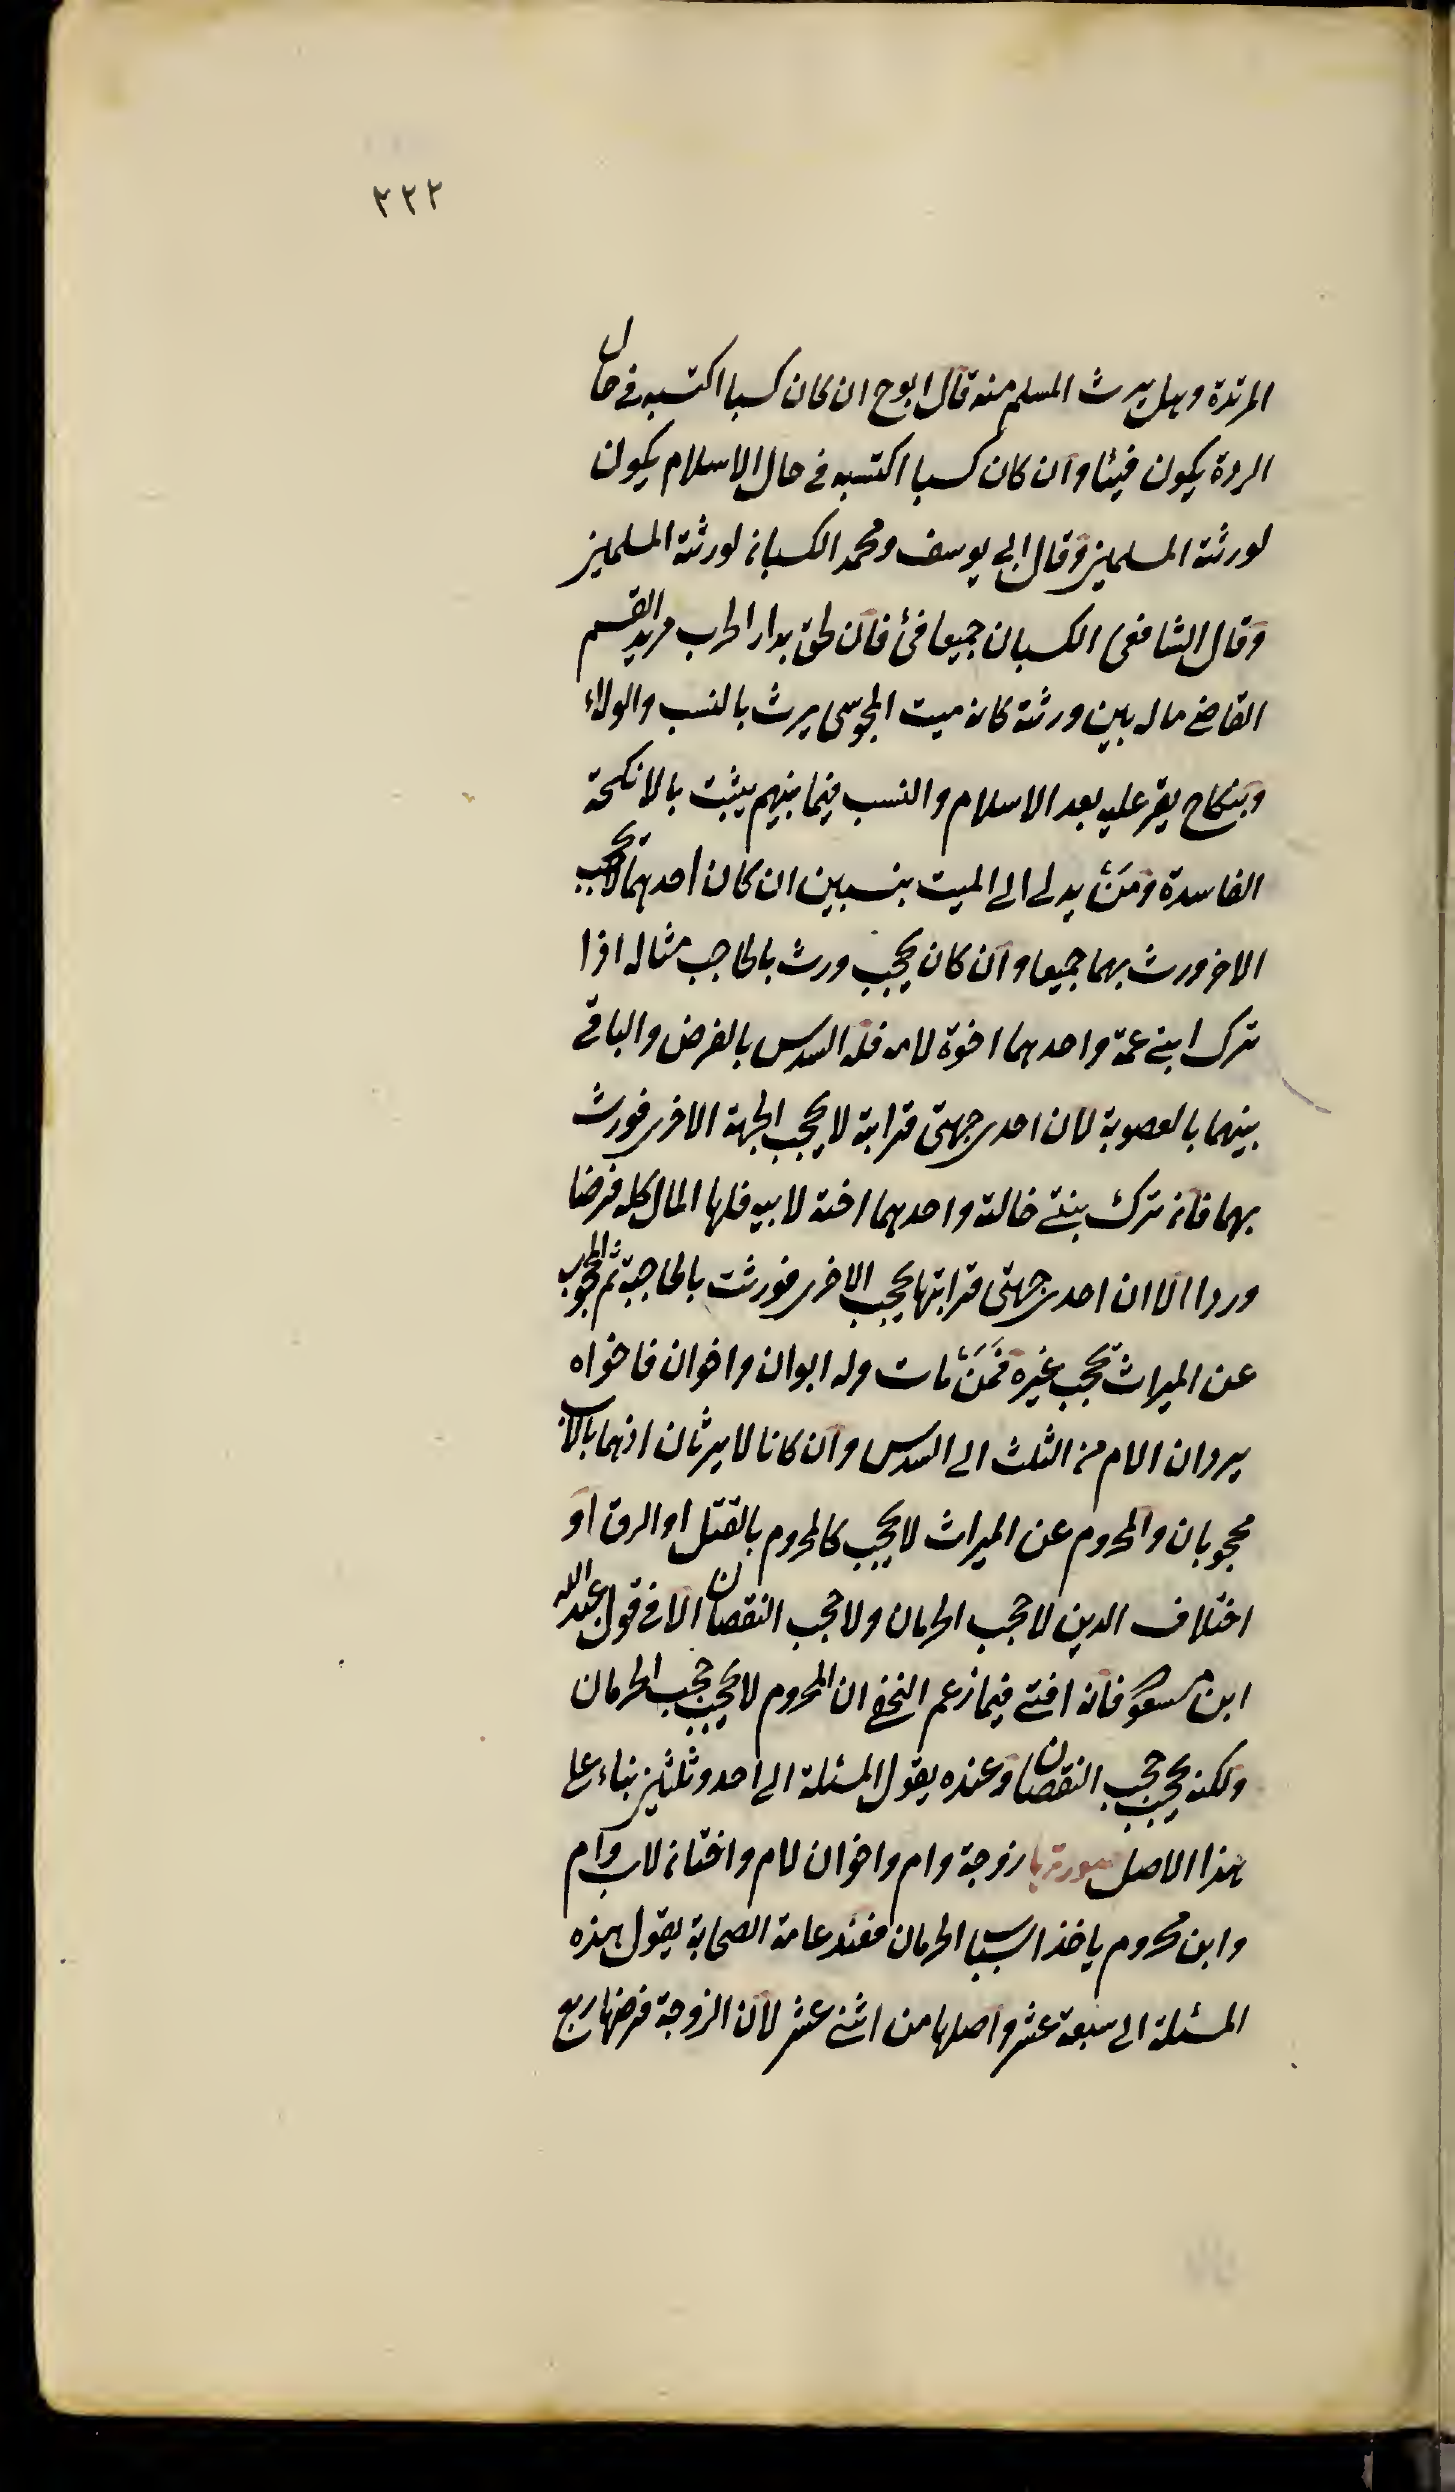 ٢٢٢
المرتدة وهل يرث المسلم منه قال ابوح ان كان كسبا اكتسبه في حال
الردة يكون فيئا وان كان كسبا اكتسبه في حال الاسلام يكون
لورثة المسلمين وقال ابي يوسف ومحمد الكسبان لورثة المسلمين
وقال الشافعى الكسبان جميعا فئ فان لحق بدار الحرب مريد القسم
القاضي ماله بين ورثته كانه ميت المجوسى يرث بالنسب والولاء
وبنكاح يقر عليه بعد الاسلام والنسب فيما بينهم يثبت بالانكحة
الفاسدة ومن يدلى الى الميت بنسبين ان كان احدهما لا يحجب
الاخر ورث بهما جميعا وان كان يحجب ورث بالحاجب مثاله اذا
ترك ابني عمة واحدهما اخوة لامه فله السدس بالفرض والباقى
بينهما بالعصوبة لان احدى جهتى قرابة لا يحجب الجهة الاخرى فورث
بهما فان ترك بنتى خالته واحدهما اخته لابيه فلها المال كله فرضا
وردا الا ان احدى جهتى قرابتها يحجب الاخرى فورثت بالحاجبة ثم المحجوب
عن الميراث يحجب غيره فمن مات وله ابوان واخوان فاخواه
يردان الام من الثلث الى السدس وان كانا لا يرثان انهما بالاب
محجوبان والمحروم عن الميراث لا يحجب كالمحروم بالقتل او الرق او
اختلاف الدين لا حجب الحرمان ولا حجب النقصان الا في قول عبد الله
ابن مسعود فانه افتى فيما زعم النخعي ان المحروم لا يحجب حجب الحرمان
ولكنه يحجب حجب النقصان وعنده يعول المسئلة الى احد وثلثين بناء على
هذا الاصل صورتها زوجة وام واخوان لام واختان لاب وام
وابن محروم باخذ اسباب الحرمان فعند عامة الصحابة يعول هذه
المسئلة الى سبعة عشر واصلها من اثنى عشر لان الزوجة فرضها ربع